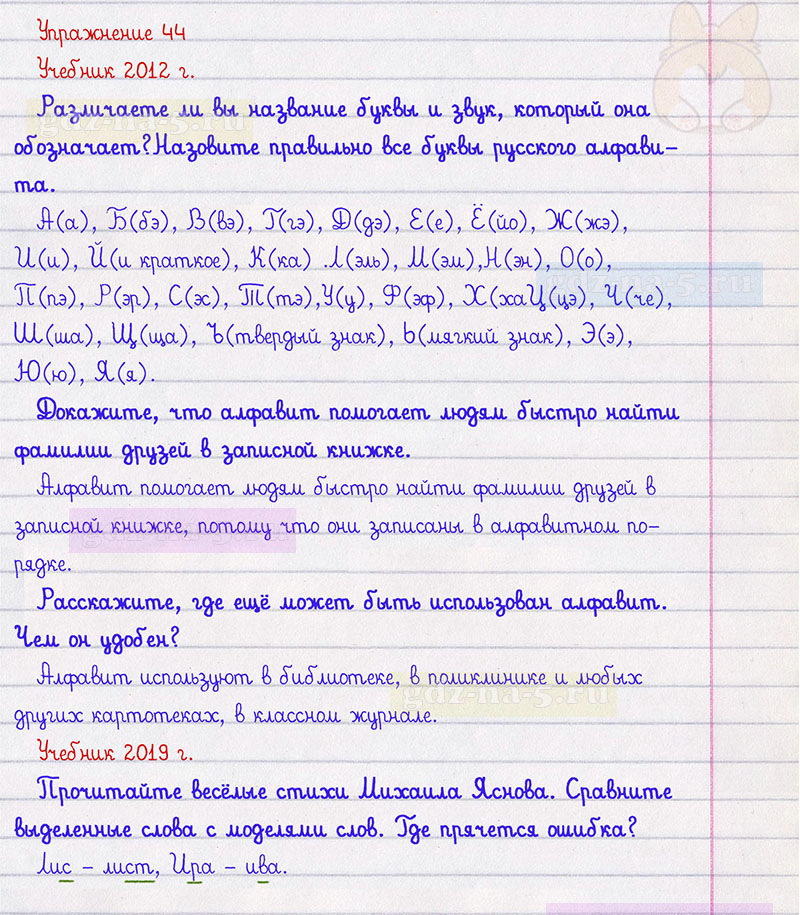 Упражнение 44
Учебник 2012 г.
Различаете ли вы название буквы и звук, который она
обозначает? Назовите правильно все буквы русского алфави-
та.
А(а), Б(бэ), В(вэ), Г(гэ), Д(дэ), Е(е), Ё(йо), Ж(жэ),
И(и), Й(и краткое), К(ка) Л(эль), М(эм),Н(эн), О(о),
П(пэ), Р(эр), С(эс), Т(тэ),У(у), Ф(эф), Х(хаЦ(цэ), Ч(че),
Ш(ша), Щ(ща), Ъ(твердый знак), Ь(мягкий знак), Э(э),
Ю(ю), Я(я).
Докажите, что алфавит помогает людям быстро найти
фамилии друзей в записной книжке.
Алфавит помогает людям быстро найти фамилии друзей в
записной книжке, потому что они записаны в алфавитном по-
рядке.
Расскажите, где ещё может быть использован алфавит.
Чем он удобен?
Алфавит используют в библиотеке, в поликлинике и любых
других картотеках, в классном журнале.
Учебник 2019 г.
Прочитайте весёлые стихи Михаила Яснова. Сравните
выделенные слова с моделями слов. Где прячется ошибка?
Лис – лист, Ира – ива.